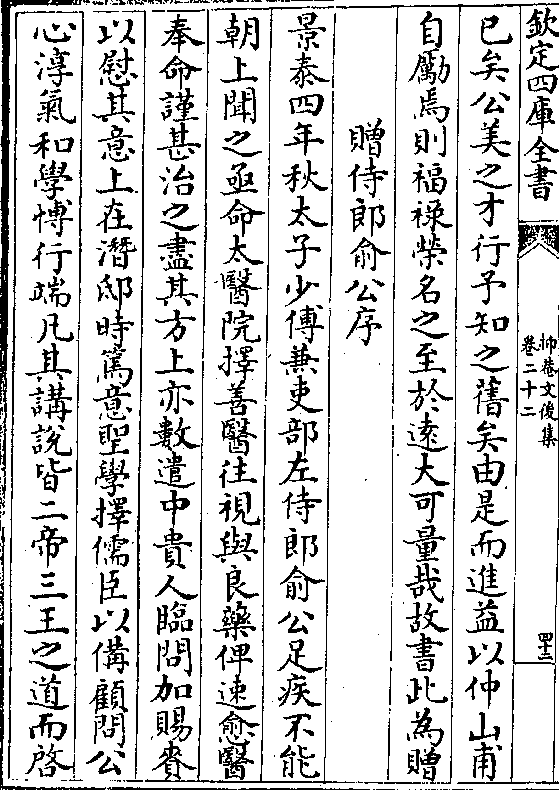 欽定四庫全書
抑菴文後集
卷二十二
四十三
已矣公美之才行予知之舊矣由是而進益以仲山甫
自勵焉則福祿榮名之至於遠大可量哉故書此為贈
贈侍郎俞公序
景泰四年秋太子少傅兼吏部左侍郎俞公足疾不能
朝上聞之亟命太醫院擇善醫往視與良藥俾速愈醫
奉命謹甚治之盡其方上亦數遣中貴人臨問加賜賚
以慰其意上在潛邸時篤意聖學擇儒臣以備顧問公
心淳氣和學博行端凡其講說皆二帝三王之道而啓